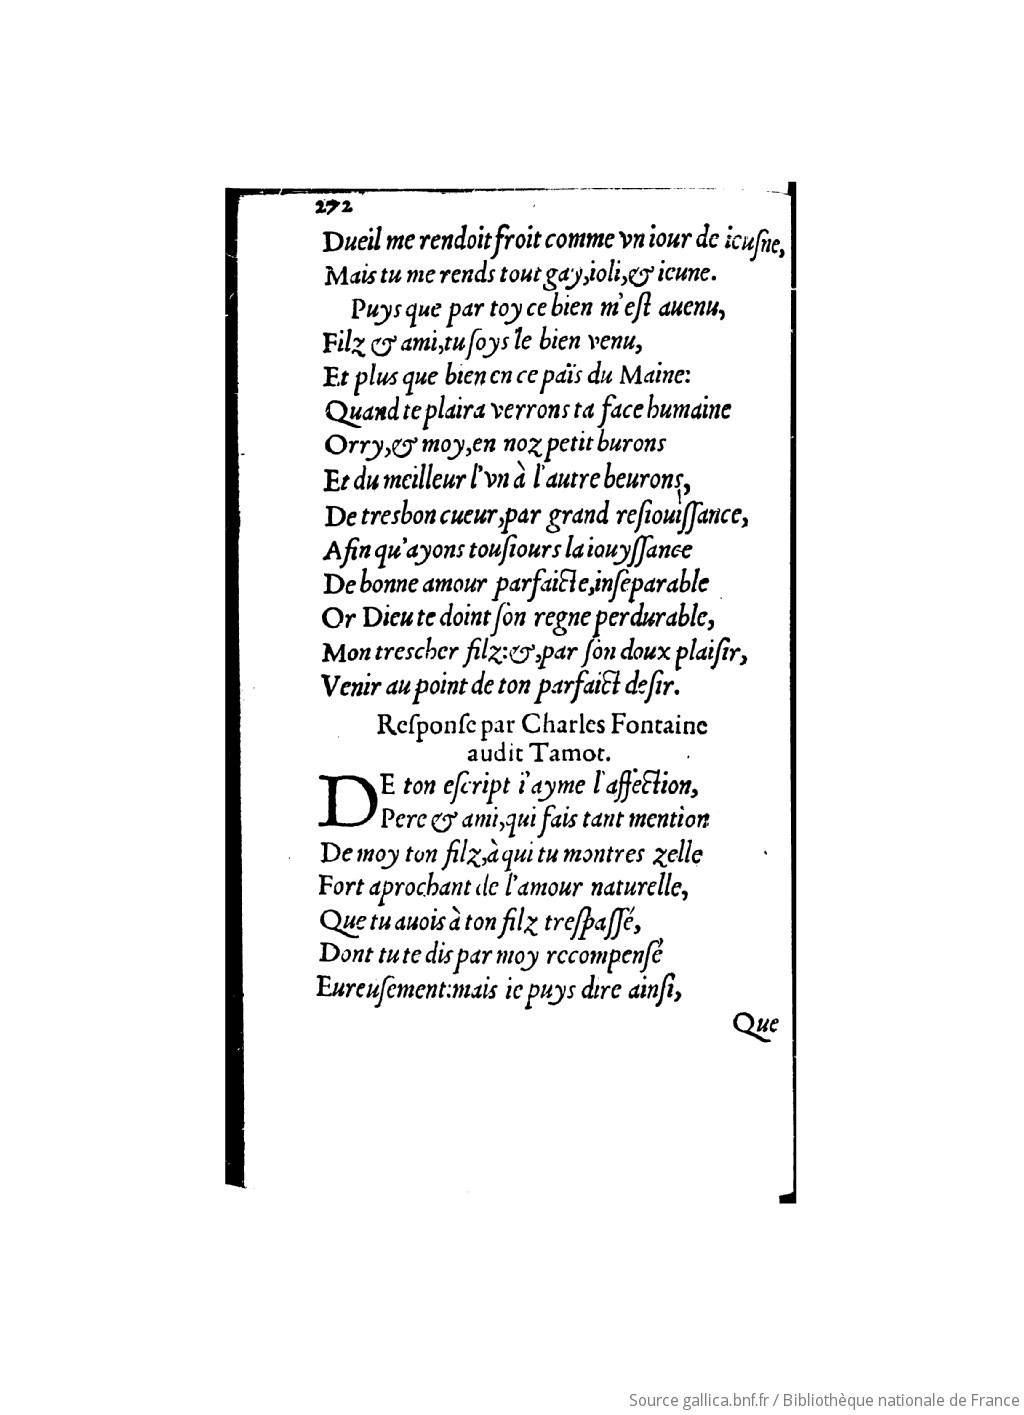 272
Dueil me rendoit froit comme vn iour de ieuſne,
Mais tu me rends tout gay,ioli,& ieune.
Puys que par toy ce bien m'eſt auenu,
Filz & ami,tu ſoys le bien venu,
Et plus que bien en ce païs du Maine:
Quand te plaira verrons ta face humaine
Orry,& moy,en noz petit burons
Et du meilleur l'vn à l'autre beurons,
De tresbon cueur,par grand reſiouiſſance,
Afin qu'ayons touſiours la iouyſſance
De bonne amour parfaicte,inſeparable
Or Dieu te doint ſon regne perdurable,
Mon trescher filz:&,par ſon doux plaiſir,
Venir au point de ton parfaict deſir.
Reſponſe par Charles Fontaine
audit Tamot.
DE ton eſcript i'ayme l'affection,
Pere & ami,qui fais tant mention
De moy ton filz,à qui tu montres zelle
Fort aprochant de l'amour naturelle,
Que tu auois à ton filz treſpaſſé,
Dont tu te dis par moy recompenſé
Eureuſement:mais ie puys dire ainſi,
Que
Source gallica.bnf.fr / Bibliothèque nationale de France